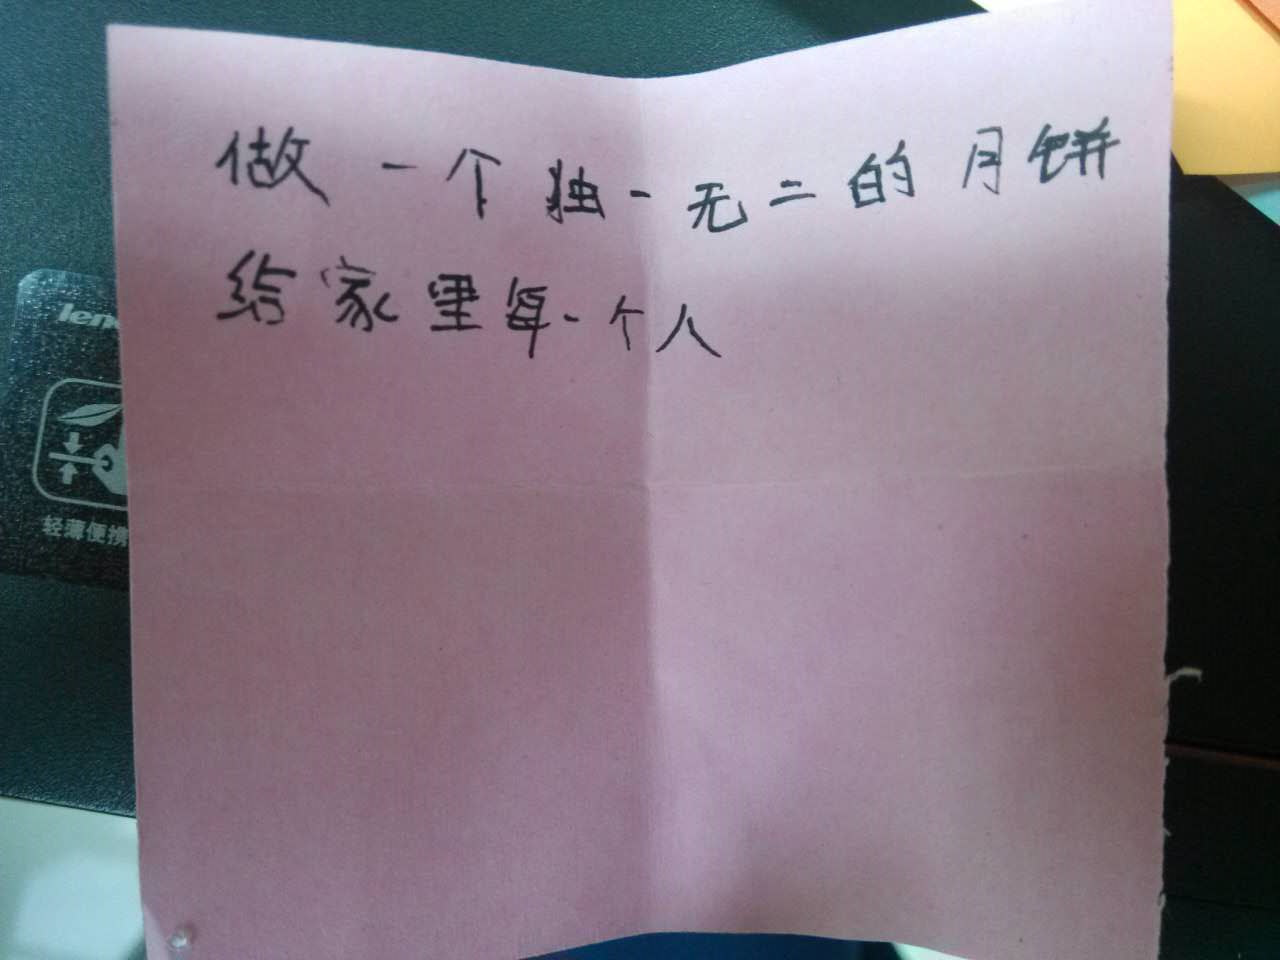 做一个独一无二的月饼
给家里每一个人
轻薄便携